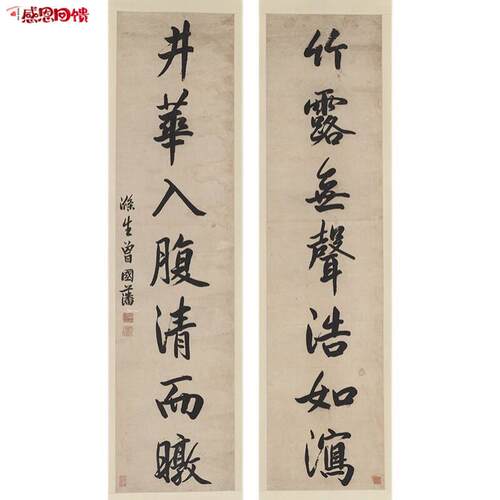 感恩回馈
竹露無聲浩如瀉
井華入腹清而暾
滌生曾國藩